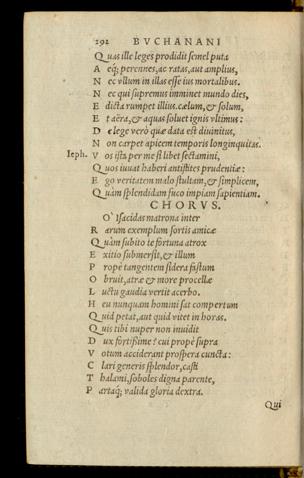 292 BVCHANANI
Quas ille leges prodidit semel puta
Aeq; perennes, ac ratas, aut amplius,
Nec vllum in illas esse ius mortalibus.
Nec qui supremus imminet mundo dies,
Edicta rumpet illius. cælum, & solum,
Et aëra, & aquas soluet ignis vltimus:
De lege verò quæ data est diuinitus,
Non carpet apicem temporis longinquitas.
Ieph. Vos ista per me si libet sectamini,
Quos iuuat haberi antistites prudentiæ:
Ego veritatem malo stultam, & simplicem,
Quàm splendidam fuco impiam sapientiam.
CHORVS.
O Isacidas matrona inter
Rarum exemplum sortis amicæ
Quàm subito te fortuna atrox
Exitio submersit, & illum
Propè tangentem sidera fastum
Obruit, atræ & more procellæ
Luctu gaudia vertit acerbo.
Heu nunquam homini sat compertum
Quid petat, aut quid vitet in horas.
Quis tibi nuper non inuidit
Dux fortissime? cui propè supra
Votum acciderant prospera cuncta:
Clari generis splendor, casti
Thalami, soboles digna parente,
Partaq; valida gloria dextra.
Qui